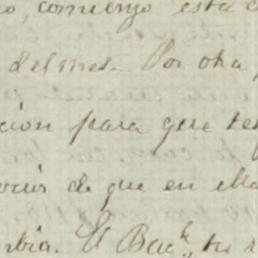 comienzo esta
del mes. Por otra
ción para que te
de que en ella
El Bach, tu